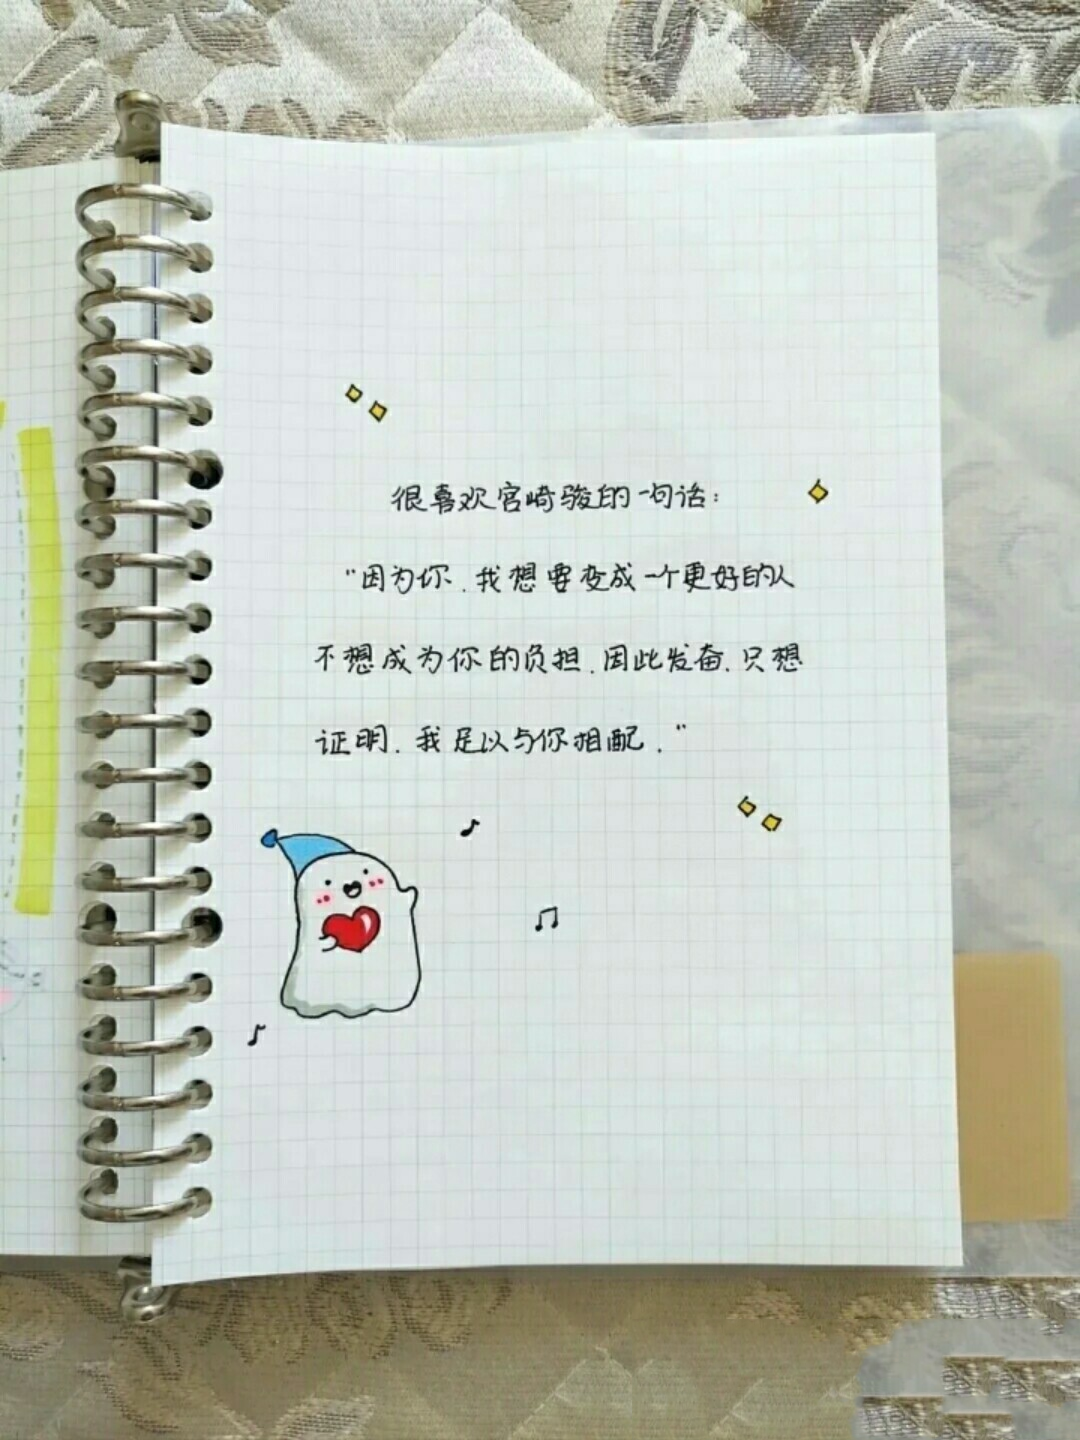 很喜欢宫崎骏的一句话:
"因为你.我想要变成一个更好的人
不想成为你的负担.因此发奋.只想
证明.我足以与你相配."